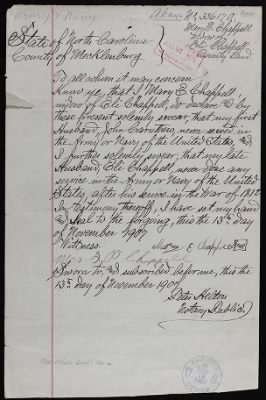 Army & Navy
No. 33617.
Mary E Chappell
widow of
Eli Chappell
State of North Carolina
County of Mecklenburg
To all whom it may concern
Know ye, that I, Mary E Chappell
widow of Eli Chappell, do declare & by
these present solemly swear, that my first
Husband, John Caruthers, never served in
the Army or Navy of the United States, and
I further solemly swear, that my late
Husband, Eli Chappell, never done any
service in the Army or Navy of the United
States, after his service in the War of 1812
In testimony thereoff, I have set my hand
and seal to the forgoing, this the 13th day
of November 1907
Witness Mary E Chappell
Chappell
Sworn to, and subscribed before me, this the
13th day of November 1907
Peter Helton
Notary Public